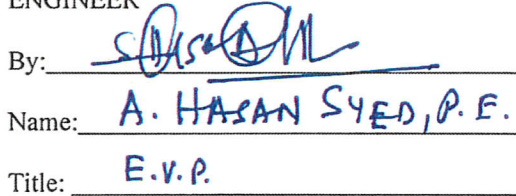 ENGINEER
By:
Name: A. HASAN SYED, P.E.
Title: E.V.P.